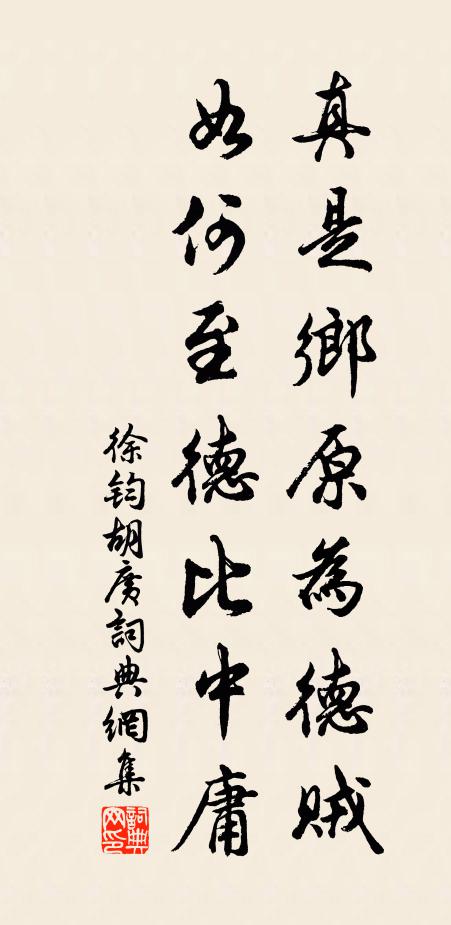 真是鄉原為德賊
如何至德比中庸
徐鈞胡廣詞典網集
詞典網印